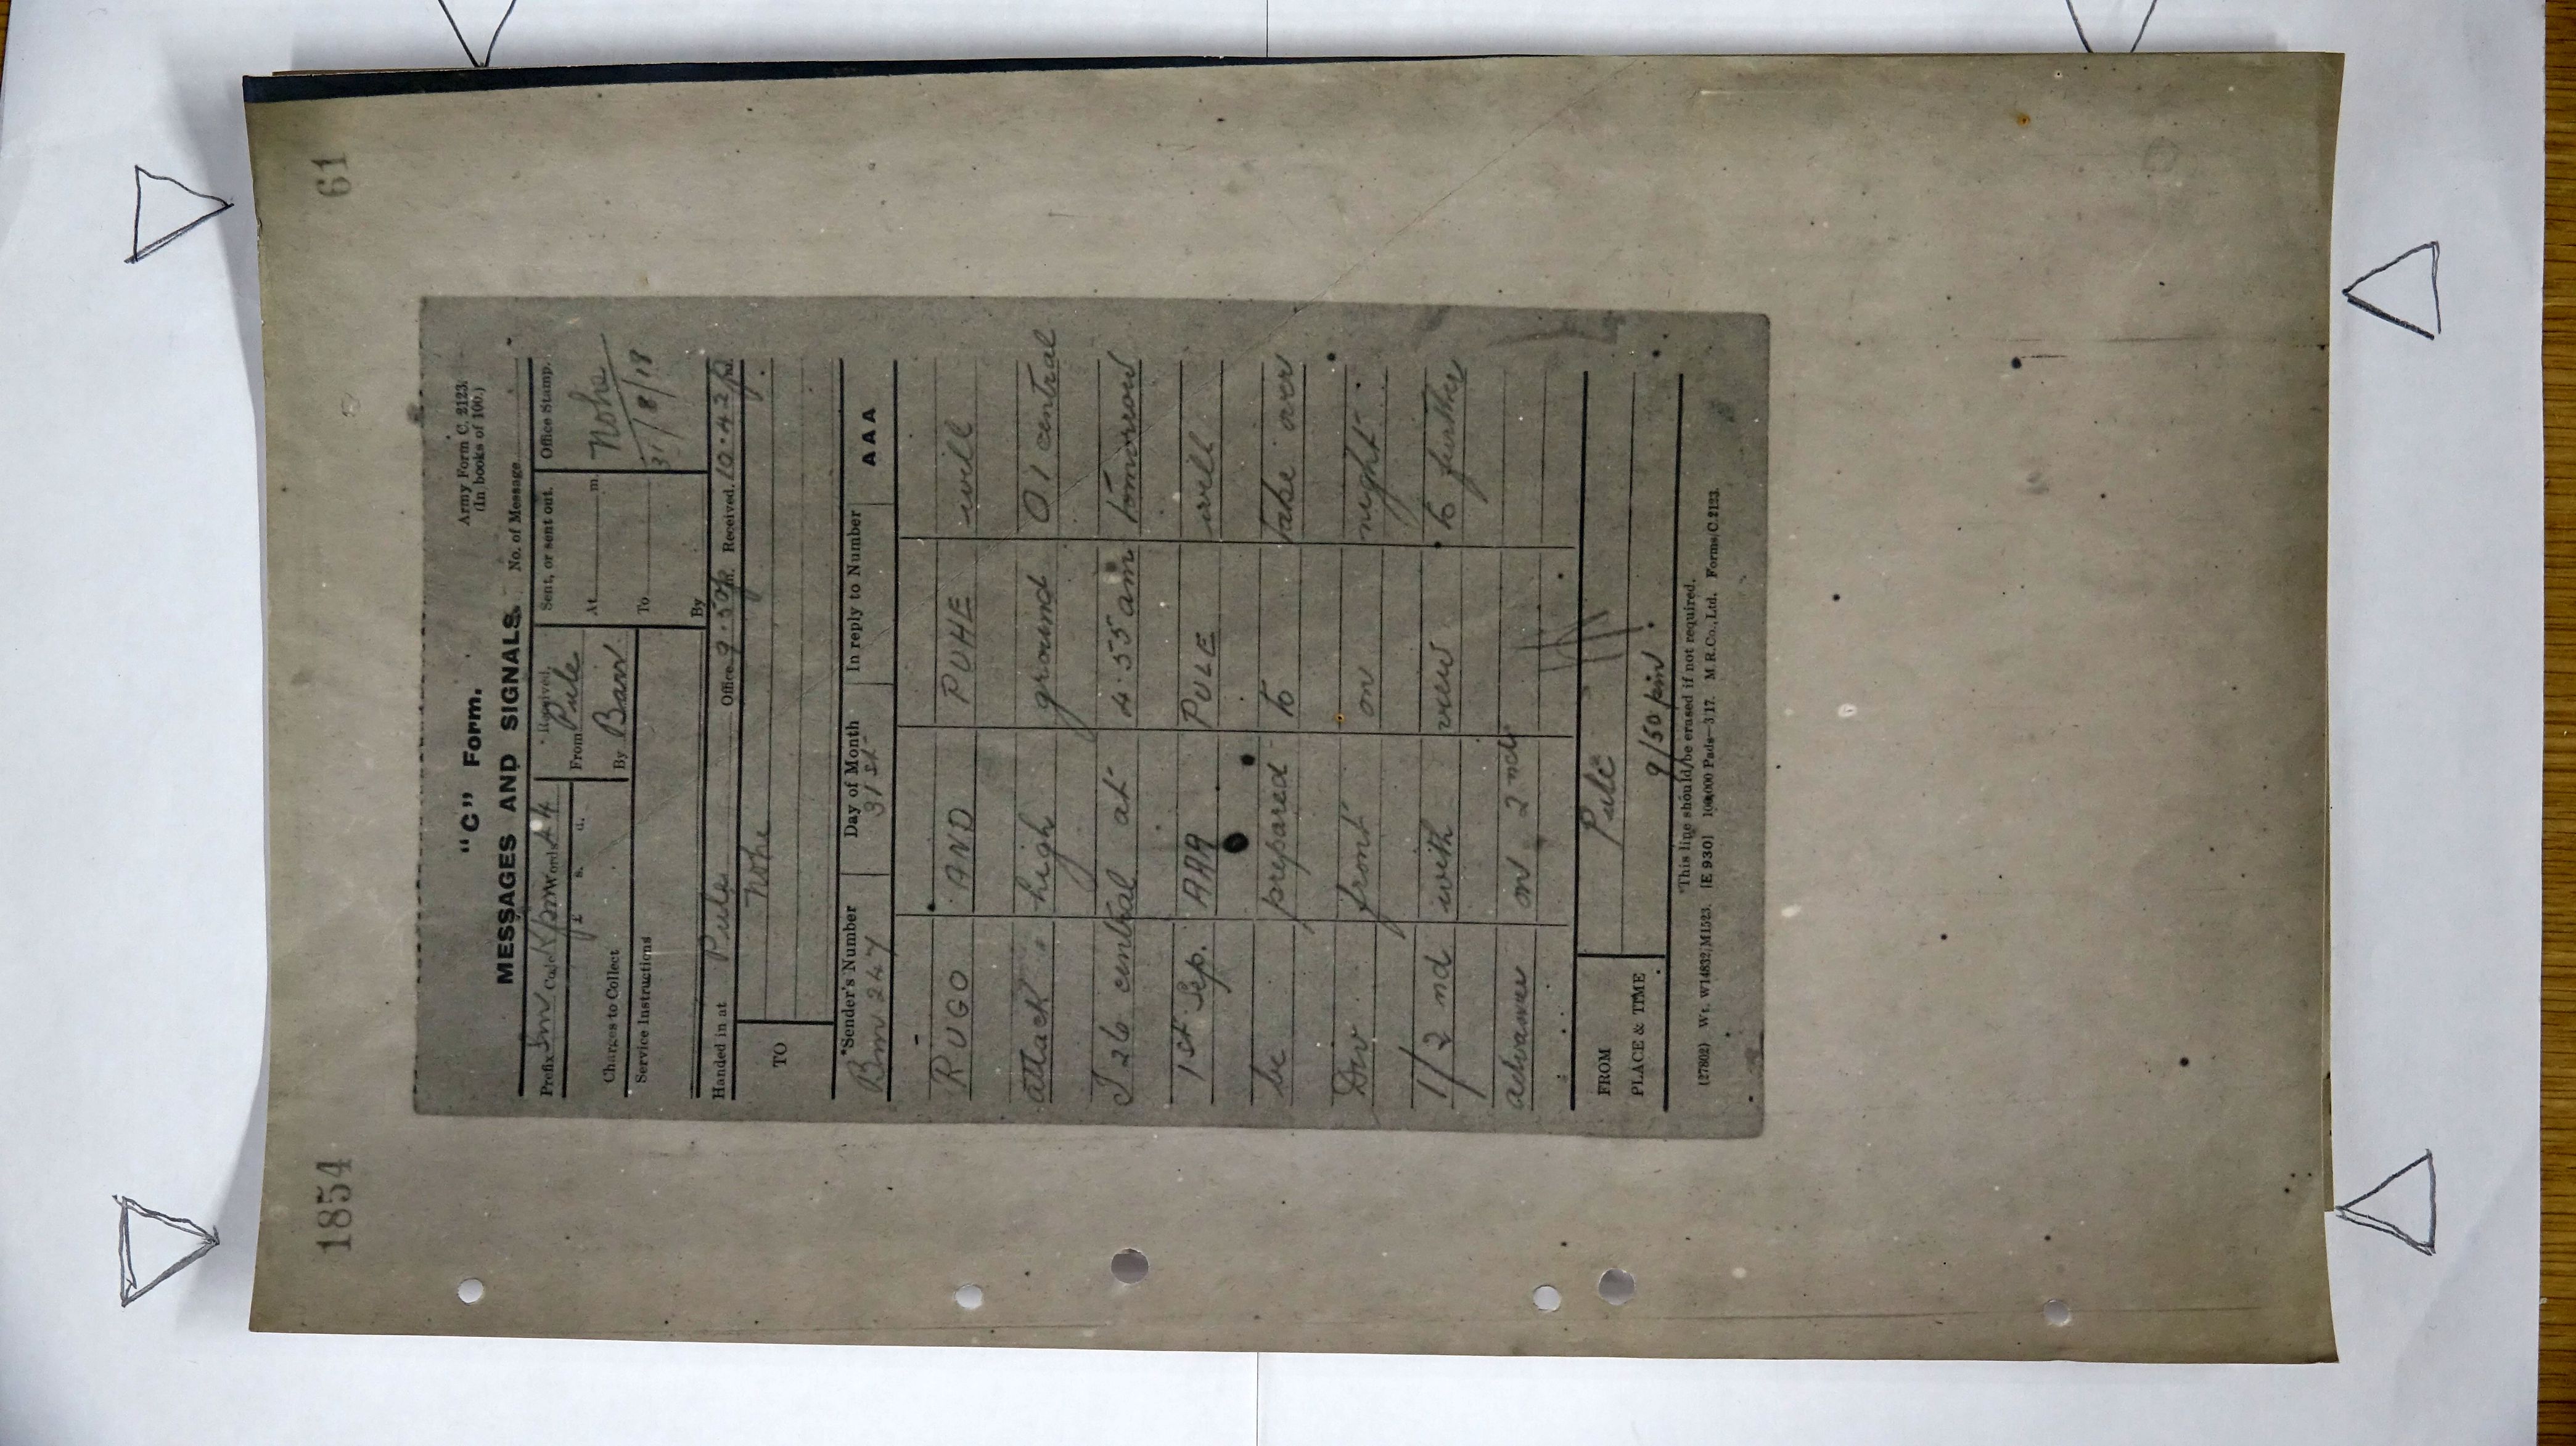 1854
61
"C" Form.
Army Form C. 2123.
(In books of 100.)
MESSAGES AND SIGNALS.
No. of Message
Prefix Sm Code Words 44
Received,
From Pule
By Barr
Sent, or sent out.
At m.
To
By
Office Stamp.
Nohe
31/8/18
£ s. d.
Charges to Collect
Service Instructions
Handed in at Pule Office 9.50p m. Received 10.42p m.
TO Nohe
*Sender's Number
Day of Month
In reply to Number
AAA
Bm 247
31st
RUGO AND PUHE will
attack high ground O1 central
I 26 central at 4.55 am tomorrow
1st Sep. AAA PULE will
be prepared to take over
Div front on night
1/2 nd with view to further
advance on 2nd
FROM Pule
PLACE & TIME 9/50 pm
*This line should be erased if not required.
(27802) Wt. W14832/M1523. [E 930] 100,000 Pads—3/17. M.R.Co., Ltd. Forms/C.2123.